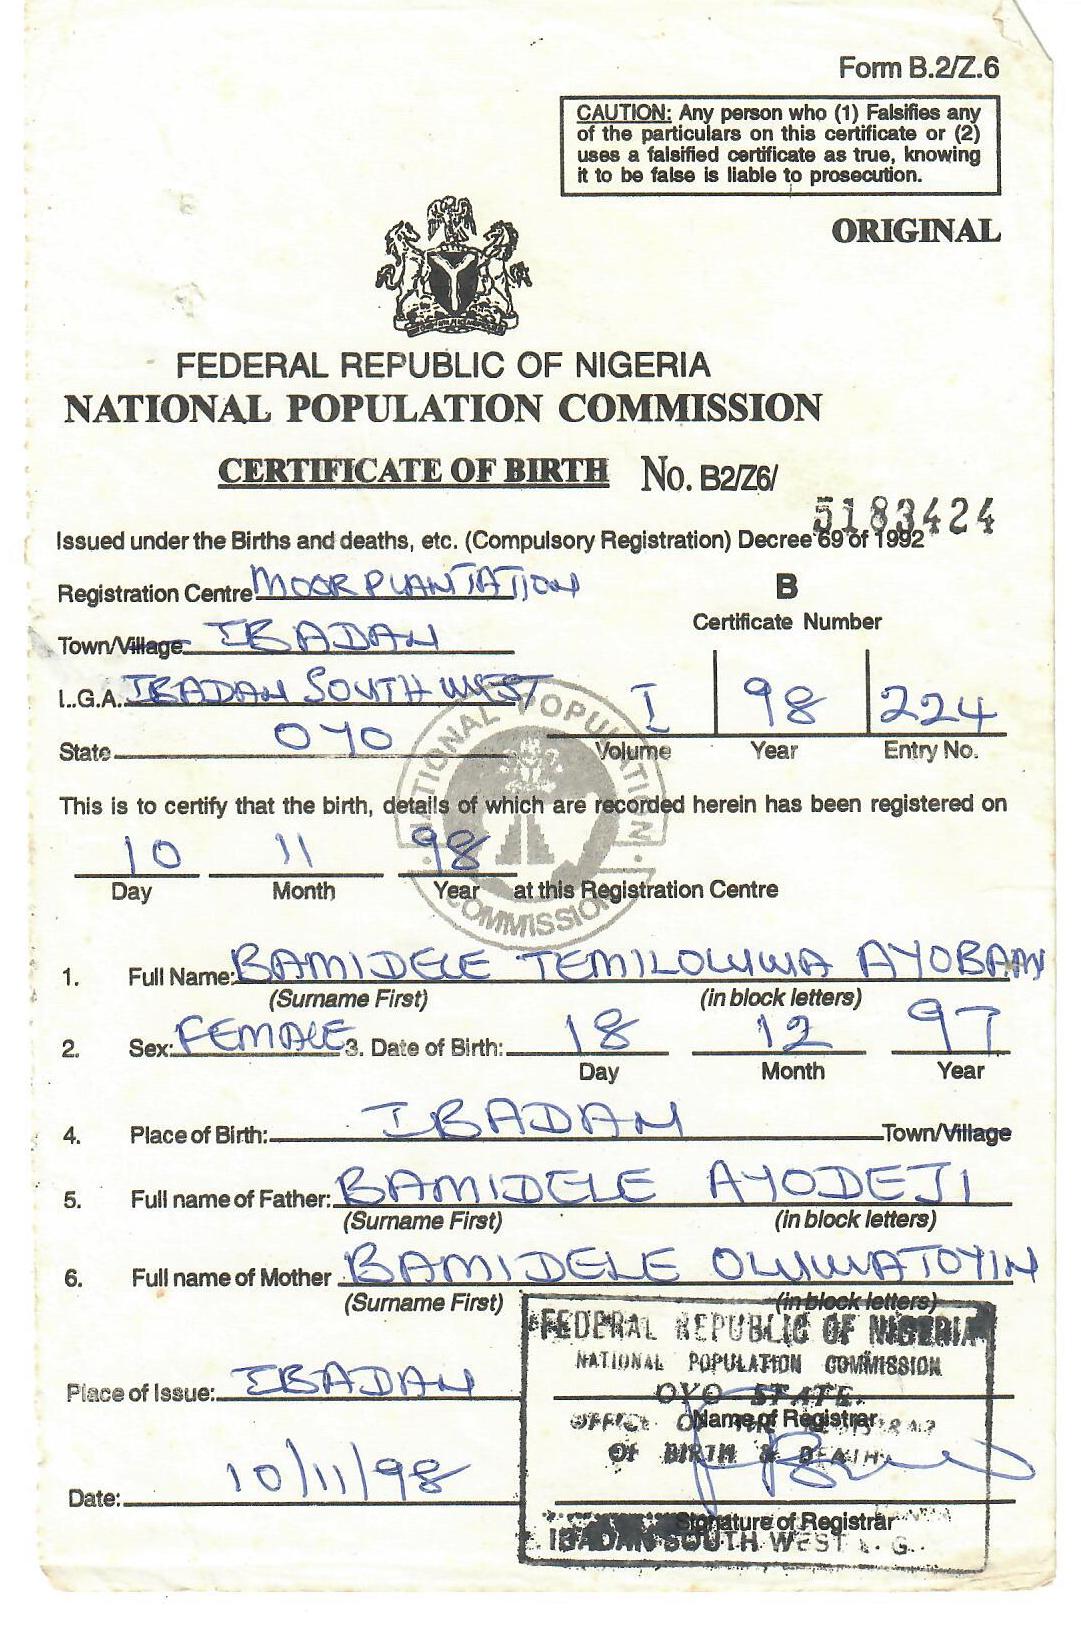 Form B.2/Z.6
CAUTION: Any person who (1) Falsifies any
of the particulars on this certificate or (2)
uses a falsified certificate as true, knowing
it to be false is liable to prosecution.
ORIGINAL
FEDERAL REPUBLIC OF NIGERIA
NATIONAL POPULATION COMMISSION
CERTIFICATE OF BIRTH No. B2/Z6/
5183424
Issued under the Births and deaths, etc. (Compulsory Registration) Decree 69 of 1992
Registration Centre MOOR PLANTATION
B
Certificate Number
Town/Village IBADAN
L.G.A. IBADAN SOUTH WEST
I 98 224
State OYO
Volume Year Entry No.
NATIONAL POPULATION COMMISSION
This is to certify that the birth, details of which are recorded herein has been registered on
10 11 98
Day Month Year at this Registration Centre
1. Full Name: BAMIDELE TEMILOLUWA
(Surname First) (in block letters)
2. Sex: FEMALE 3. Date of Birth: 18 12 97
Day Month Year
4. Place of Birth: IBADAN Town/Village
5. Full name of Father: BAMIDELE AYODEJI
(Surname First) (in block letters)
6. Full name of Mother BAMIDELE OLUWATOYIN
(Surname First) (in block letters)
FEDERAL REPUBLIC OF NIGERIA
NATIONAL POPULATION COMMISSION
Place of Issue: IBADAN
OYO STATE
Name of Registrar
OF BIRTH & DEATH
Date: 10/11/98
Signature of Registrar
IBADAN SOUTH WEST L.G.